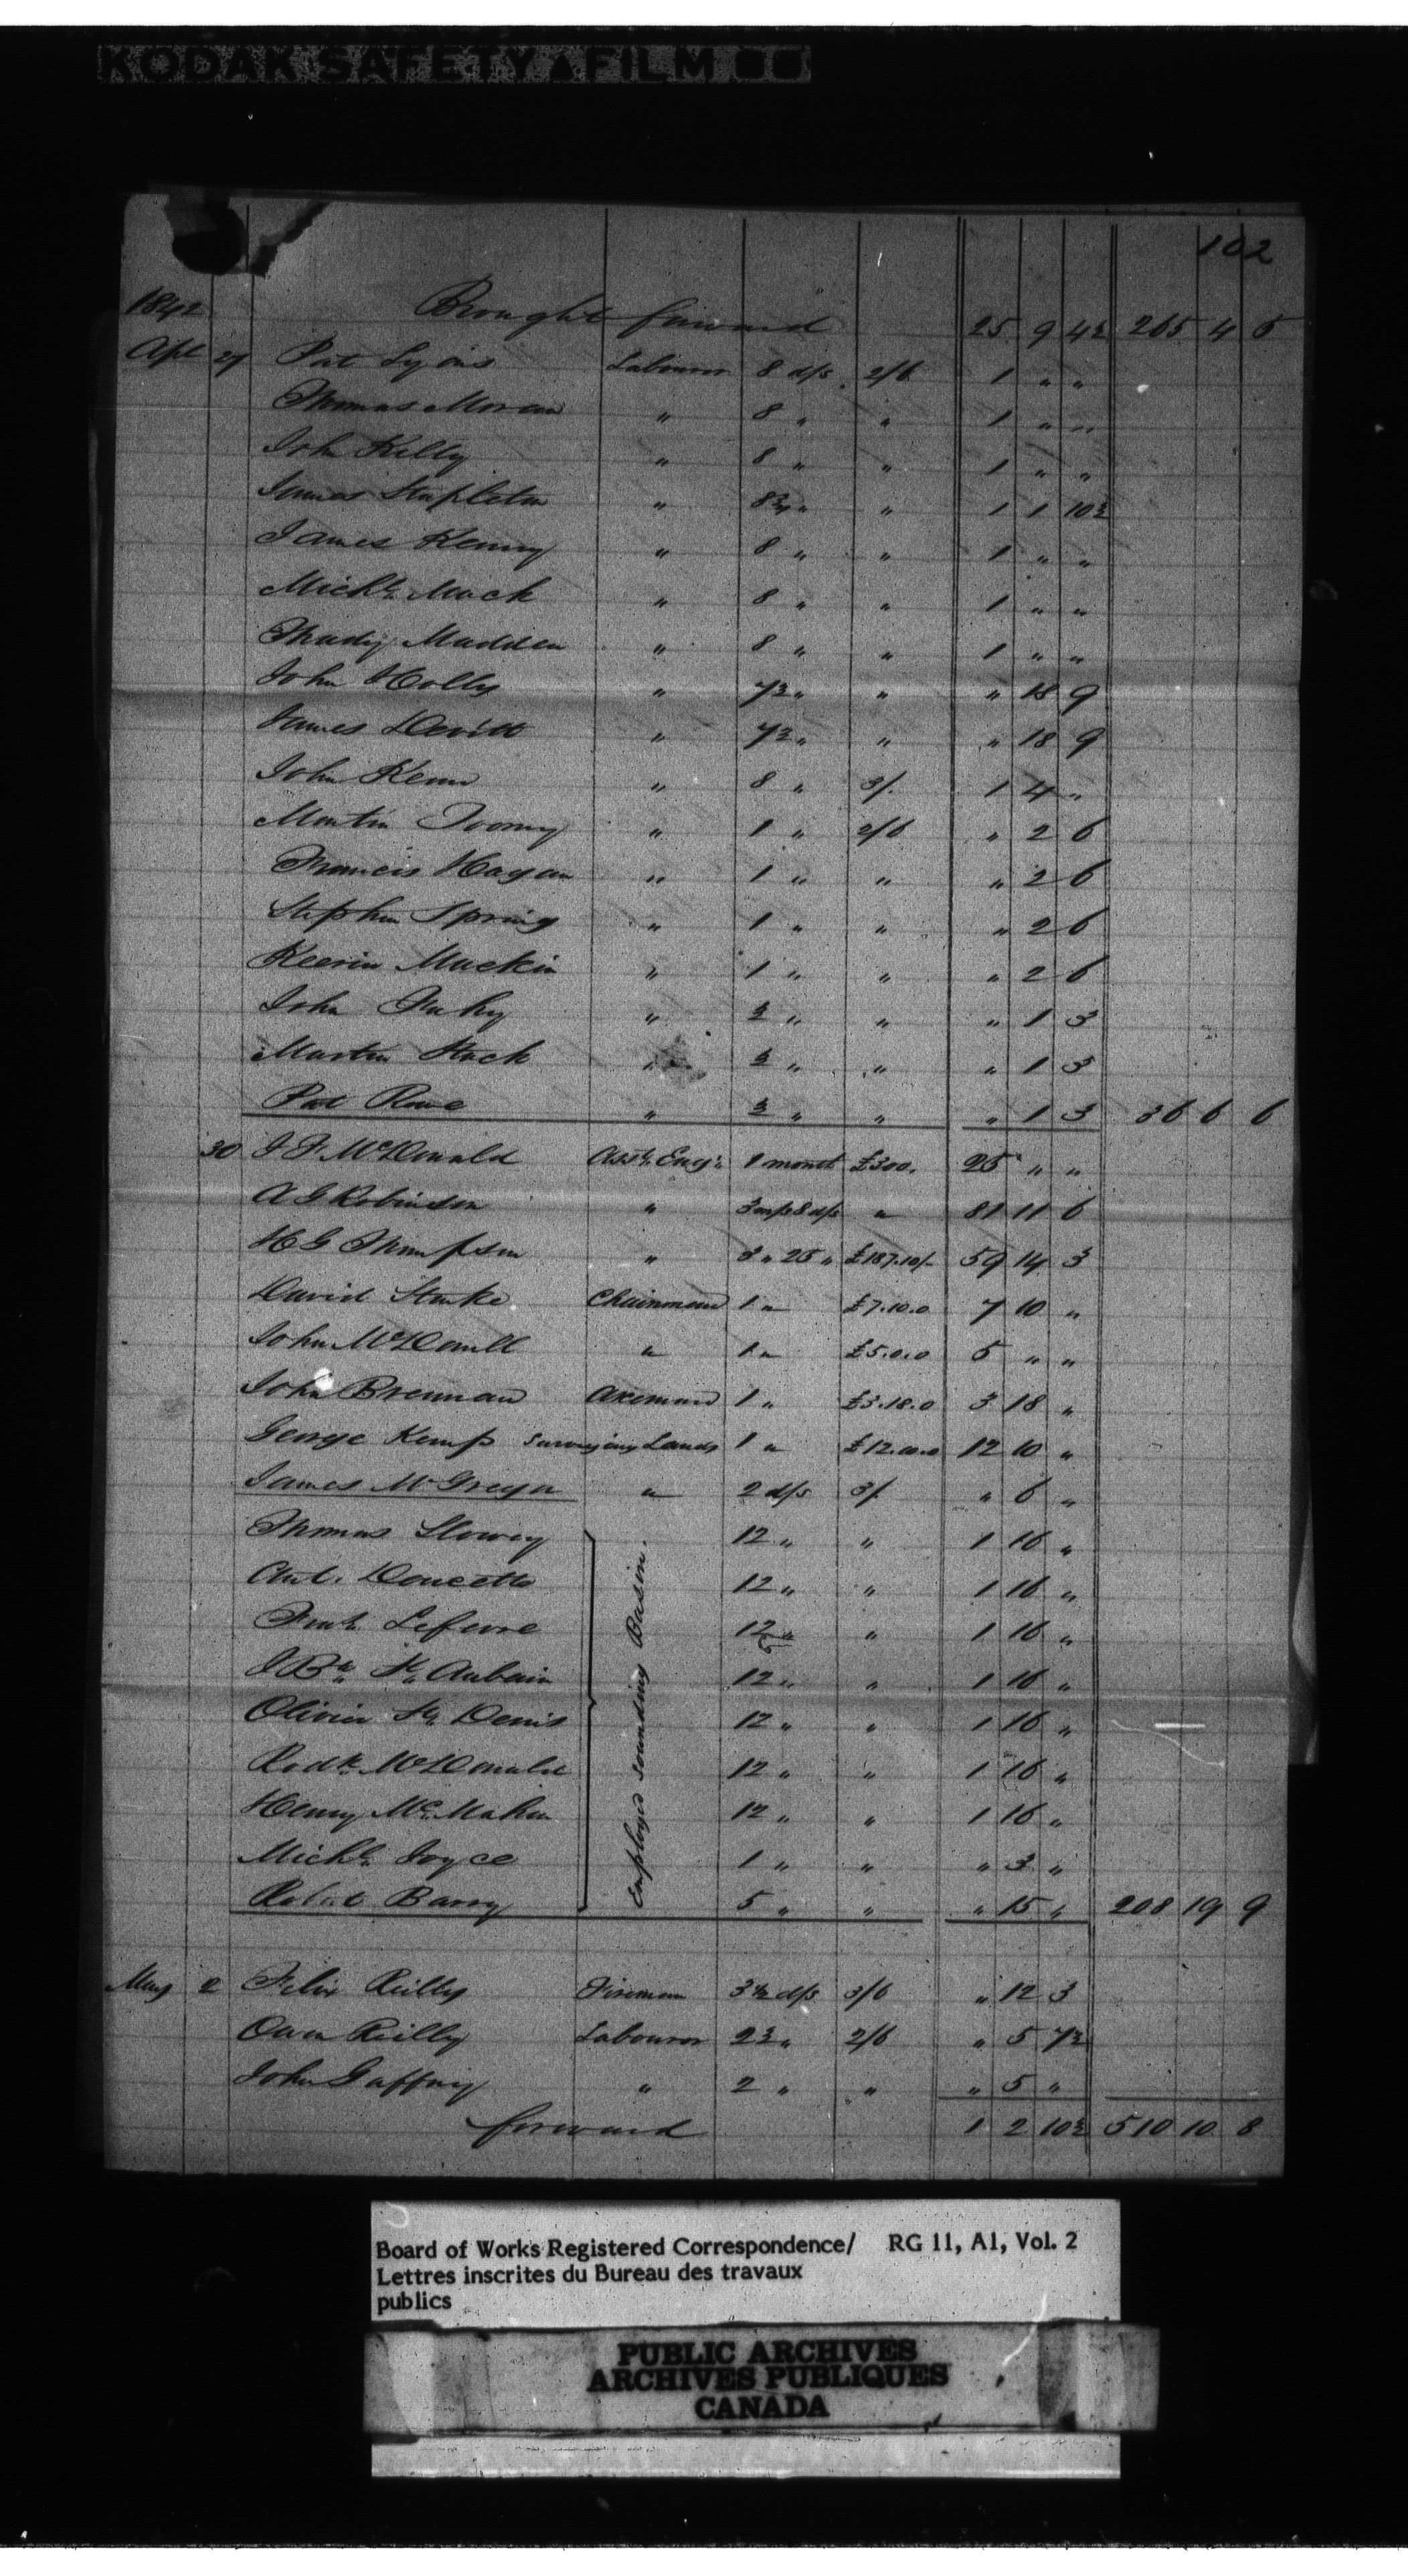 KODAK SAFETY ▲ FILM
102
1842 Brought forward 25 9 4½ 265 4 5
Apl 27 Pat Lyons Labourer 8 d/s 2/6 1 " "
Thomas Moran " 8 " " 1 " "
John Kelly " 8 " " 1 " "
James Stapleton " 8¾ " " 1 1 10½
James Kenny " 8 " " 1 " "
Michl. Mack " 8 " " 1 " "
Thady Madden " 8 " " 1 " "
John Holly " 7½ " " " 18 9
James Devitt " 7½ " " " 18 9
John Kenn " 8 " 3/. 1 4 "
Martin Toomy " 1 " 2/6 " 2 6
Francis Hagan " 1 " " " 2 6
Stephen Spring " 1 " " " 2 6
Keerin Mackin " 1 " " " 2 6
John Fahy " ½ " " " 1 3
Martin Stack " ½ " " " 1 3
Pat Rowe " ½ " " " 1 3 36 6 6
30 J F McDonald Asst. Engr. 1 month £300. 25 " "
A G Robinson " 3 m/s 8 d/s " 81 11 6
H G Thompson " 3 " 25 " £187.10/- 59 14 3
David Starke Chainman 1 " £7.10.0 7 10 "
John McDonell " 1 " £5.0.0 5 " "
John Brennan Axeman 1 " £3.18.0 3 18 "
George Kemp Surveying Lands 1 " £12.10.0 12 10 "
James McGregor " 2 d/s 3/. " 6 "
Employed sounding Basin.
Thomas Slowey 12 " " 1 16 "
Ant. Doucette 12 " " 1 16 "
Frans. Lefevre 12 " " 1 16 "
J Bte St. Aubain 12 " " 1 16 "
Olivier St. Denis 12 " " 1 16 "
Rodk. McDonald 12 " " 1 16 "
Henry McMahon 12 " " 1 16 "
Michl. Joyce 1 " " " 3 "
Robert Barry 5 " " " 15 " 208 19 9
May 2 Felix Reilly Fireman 3½ d/s 3/6 " 12 3
Owen Reilly Labourer 2¼ " 2/6 " 5 7½
John Gaffny " 2 " " " 5 "
forward 1 2 10½ 510 10 8
Board of Works Registered Correspondence/ RG 11, A1, Vol. 2
Lettres inscrites du Bureau des travaux
publics
PUBLIC ARCHIVES
ARCHIVES PUBLIQUES
CANADA